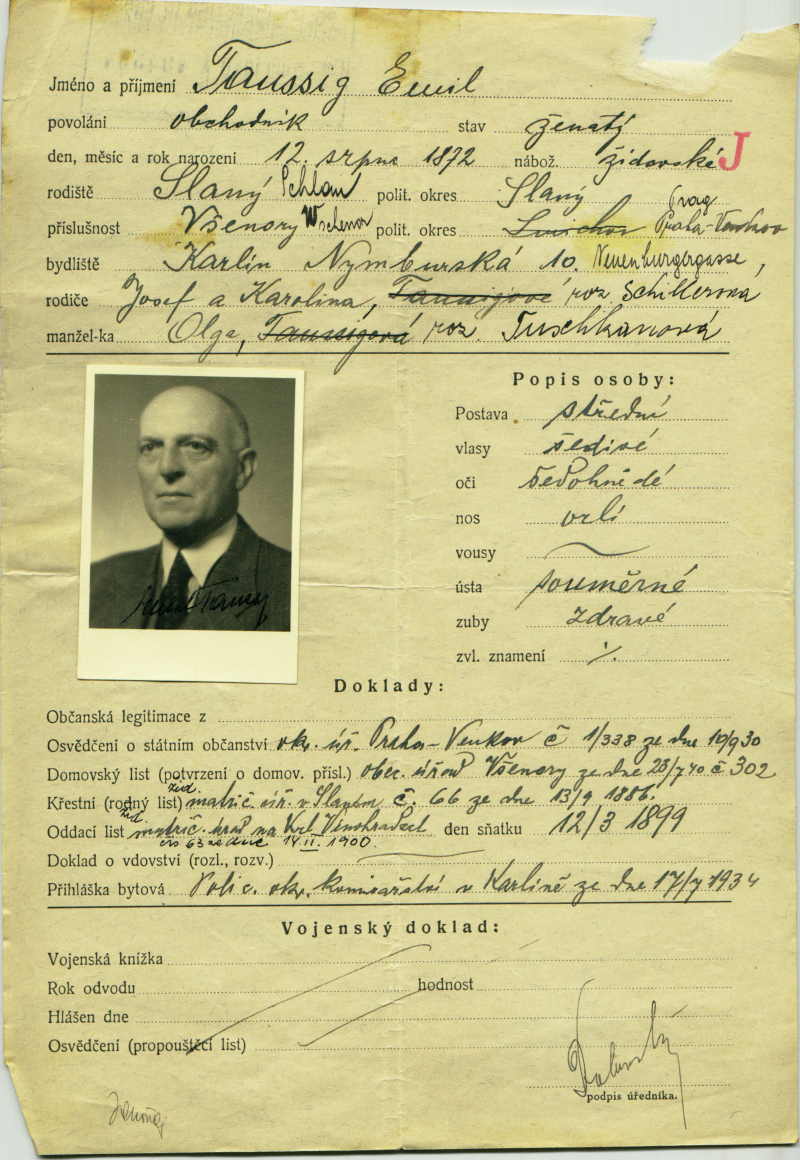 Jméno a příjmení Taussig Emil
povolání obchodník stav ženatý
den, měsíc a rok narození 12. srpna 1872 nábož. židovské J
rodiště Slaný Schlan polit. okres Slaný
Prag
příslušnost Všenory Wschenor polit. okres Smíchov Praha-Venkov
bydliště Karlín Nymburská 10. Neuenburgergasse,
rodiče Josef a Karolina, Taussigové roz Schillerova
manžel-ka Olga, Taussigová roz. Tuschkanová
Popis osoby:
Postava střední
vlasy šedivé
oči šedohnědé
nos orlí
vousy
ústa souměrné
zuby zdravé
zvl. znamení ./.
Emil Taussig
Doklady:
Občanská legitimace z
Osvědčení o státním občanství okr. úř. Praha-Venkov č 1/338 ze dne 10/9 30
Domovský list (potvrzení o domov. přísl.) obec. úřad Všenory ze dne 23/7 40 č 302
žid.
Křestní (rodný list) matrič. úř. v Slaném č. 66 ze dne 13/9 1886.
žid
Oddací list matrič. úřad na Král. Vinohradech den sňatku 12/3 1899
čís 63 ze dne 14 II. 1900.
Doklad o vdovství (rozl., rozv.)
Přihláška bytová Polic. okr. komisařství v Karlíně ze dne 17/7 1934
Vojenský doklad:
Vojenská knížka
Rok odvodu hodnost
Hlášen dne
Osvědčení (propouštěcí list)
podpis úředníka.